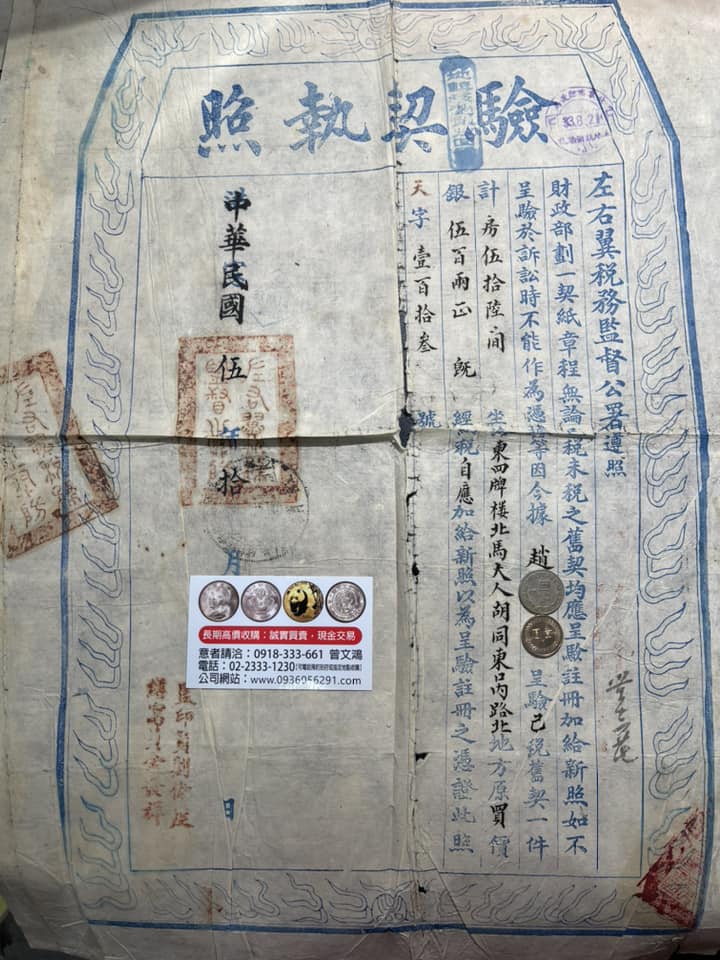 驗契執照
左右翼稅務監督公署遵照
財政部劃一契紙章程無論已稅未稅之舊契均應呈驗註冊加給新照如不
呈驗於訴訟時不能作為憑據等因今據 趙 呈驗已稅舊契一件
計房伍拾陸間 坐落東四牌樓北馬大人胡同東口內路北地方原買價
銀伍百兩正 既經稅自應加給新照以為呈驗註冊之憑證此照
天字壹百拾叁號
中華民國伍年拾月 日
33.8.21
長期高價收購：誠實買賣，現金交易
意者請洽：0918-333-661 曾文鴻
電話：02-2333-1230
公司網站：www.0936056291.com